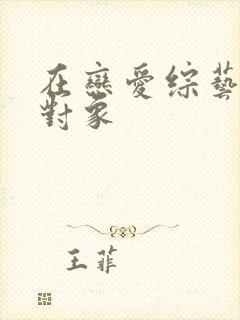 在戀愛綜藝
對象
王菲